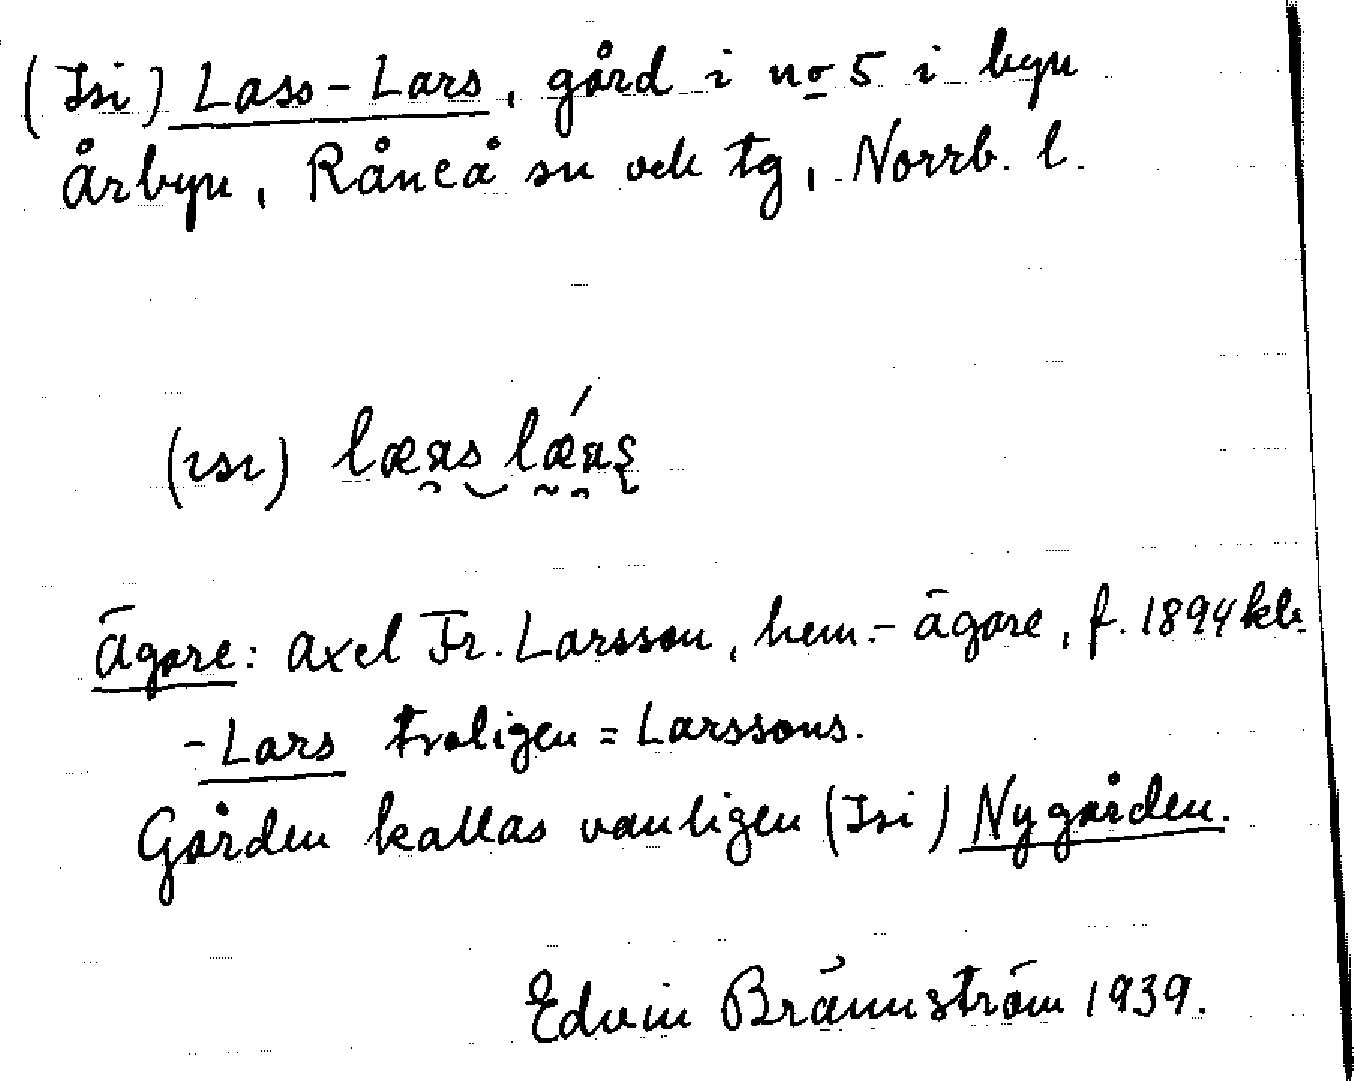 (Isi) Lass-Lars, gård i no 5 i byn
Årbyn, Råneå sn och tg, Norrb. l.
(ısı)
Ägare: Axel Fr. Larsson, hem.-ägare, f. 1894
-Lars troligen = Larssons.
Gården kallas vanligen (Isi) Nygården.
Edvin Brännström 1939.